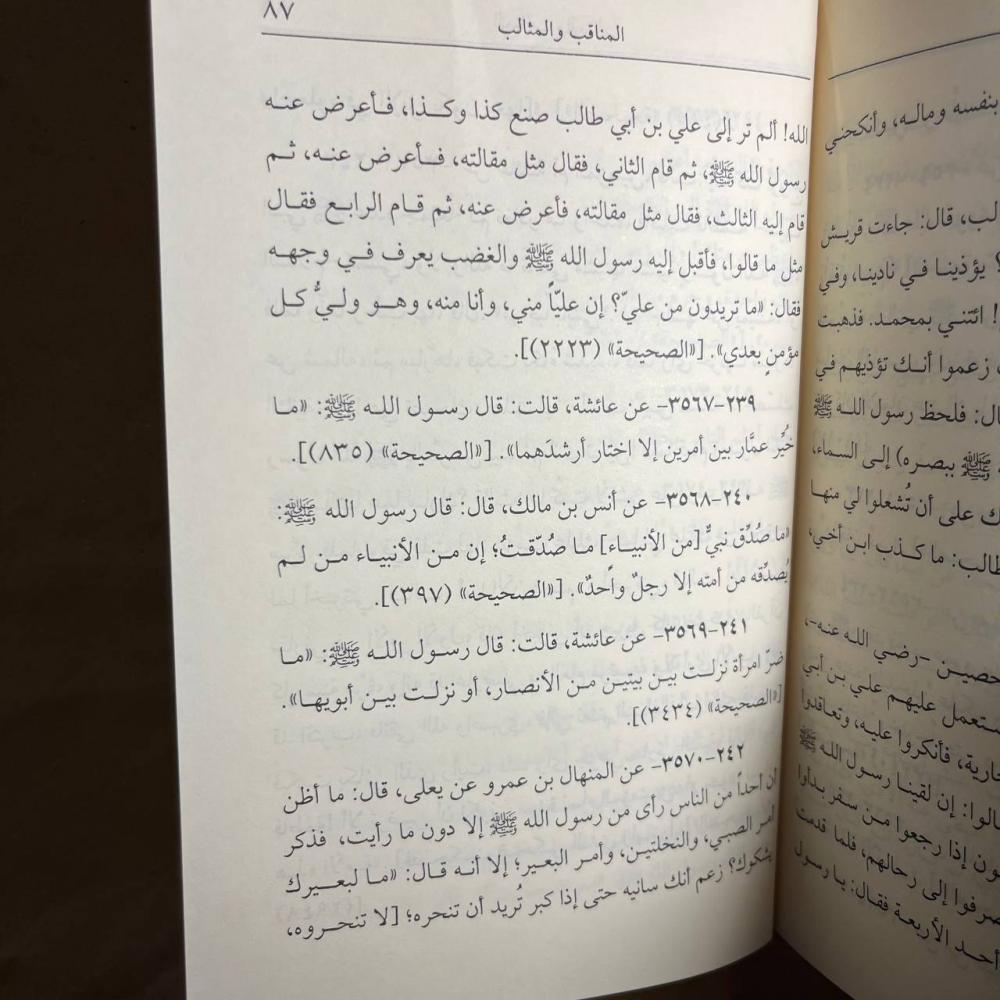 بنفسه وماله، وأنكحني
لب، قال: جاءت قريش
؟ يؤذينا في نادينا، وفي
! ائتني بمحمد. فذهبت
زعموا أنك تؤذيهم في
ال: فلحظ رسول الله ﷺ
ﷺ ببصره) إلى السماء،
ك على أن تُشعلوا لي منها
طالب: ما كذب ابن أخي،
حصين -رضي الله عنه-،
ستعمل عليهم علي بن أبي
جارية، فأنكروا عليه، وتعاقدوا
الوا: إن لقينا رسول الله ﷺ
ون إذا رجعوا من سفر بدأوا
صرفوا إلى رحالهم، فلما قدمت
أحد الأربعة فقال: يا رسول
المناقب والمثالب
٨٧
الله! ألم تر إلى علي بن أبي طالب صنع كذا وكذا، فأعرض عنه
رسول الله ﷺ، ثم قام الثاني، فقال مثل مقالته، فأعرض عنه، ثم
قام إليه الثالث، فقال مثل مقالته، فأعرض عنه، ثم قام الرابع فقال
مثل ما قالوا، فأقبل إليه رسول الله ﷺ والغضب يعرف في وجهه
فقال: «ما تريدون من عليّ؟ إن عليّاً مني، وأنا منه، وهو وليُّ كل
مؤمنٍ بعدي». [«الصحيحة» (٢٢٢٣)].
٢٣٩-٣٥٦٧- عن عائشة، قالت: قال رسول الله ﷺ: «ما
خُيِّر عمَّار بين أمرين إلا اختار أرشدَهما». [«الصحيحة» (٨٣٥)].
٢٤٠-٣٥٦٨- عن أنس بن مالك، قال: قال رسول الله ﷺ:
«ما صُدِّق نبيٌّ [من الأنبياء] ما صُدّقتُ؛ إن من الأنبياء من لم
يُصدِّقه من أمته إلا رجلٌ واحدٌ». [«الصحيحة» (٣٩٧)].
٢٤١-٣٥٦٩- عن عائشة، قالت: قال رسول الله ﷺ: «ما
ضرّ امرأة نزلت بين بيتين من الأنصار، أو نزلت بين أبويها».
[«الصحيحة» (٣٤٣٤)].
٢٤٢-٣٥٧٠- عن المنهال بن عمرو عن يعلى، قال: ما أظن
أن أحداً من الناس رأى من رسول الله ﷺ إلا دون ما رأيت، فذكر
أمر الصبي، والنخلتين، وأمر البعير؛ إلا أنه قال: «ما لبعيرك
يشكوك؟ زعم أنك سانيه حتى إذا كبر تُريد أن تنحره؛ [لا تنحروه،